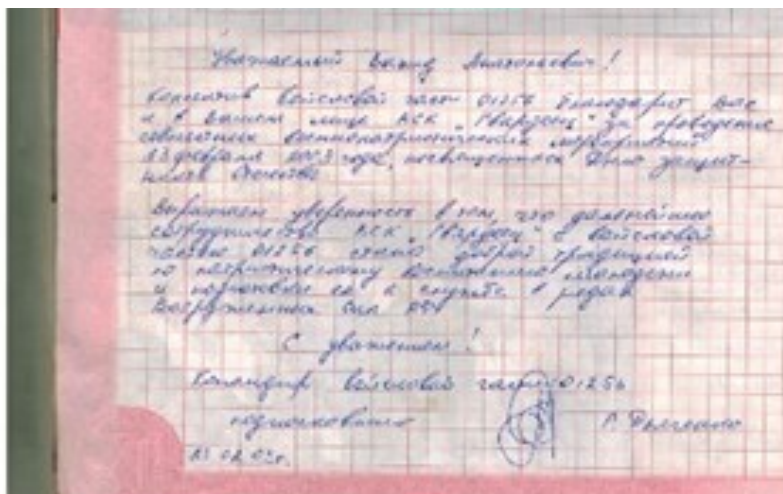 Уважаемый Анатольевич!
Коллектив войсковой части 01256 благодарит Вас
и в Вашем лице АСК "Гвардеец" за проведение
совместных военнопатриотических мероприятий
23 февраля 2003 года, посвященных Дню защит-
ников Отечества.
Выражаем уверенность в том, что дальнейшее
сотрудничество АСК "Гвардеец" с войсковой
частью 01256 станет доброй традицией
по патриотическому воспитанию молодежи
и подготовки её к службе в рядах
Вооруженных Сил РФ.
С уважением!
Командир войсковой части 01256
подполковник
23.02.03г.